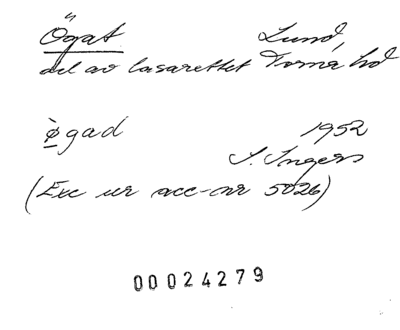 Ögat Lund,
del av lasarettet Torna hd
ø̀gad 1952
S. Ingers
(Exc ur acc-nr 5026)
00024279